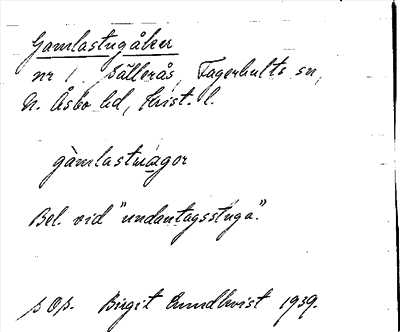 Gamlastugåker
nr 1 Sällerås, Fagerhults sn,
N. Åsbo hd, Krist. l.
gàmlastuagor
Bel. vid "undantagsstuga".
p Op. Birgit Cundlwist 1939.